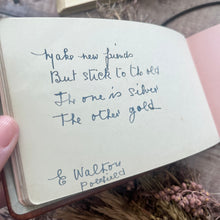 Make new friends
But stick to the old
The one is silver
The other gold.
E Walton